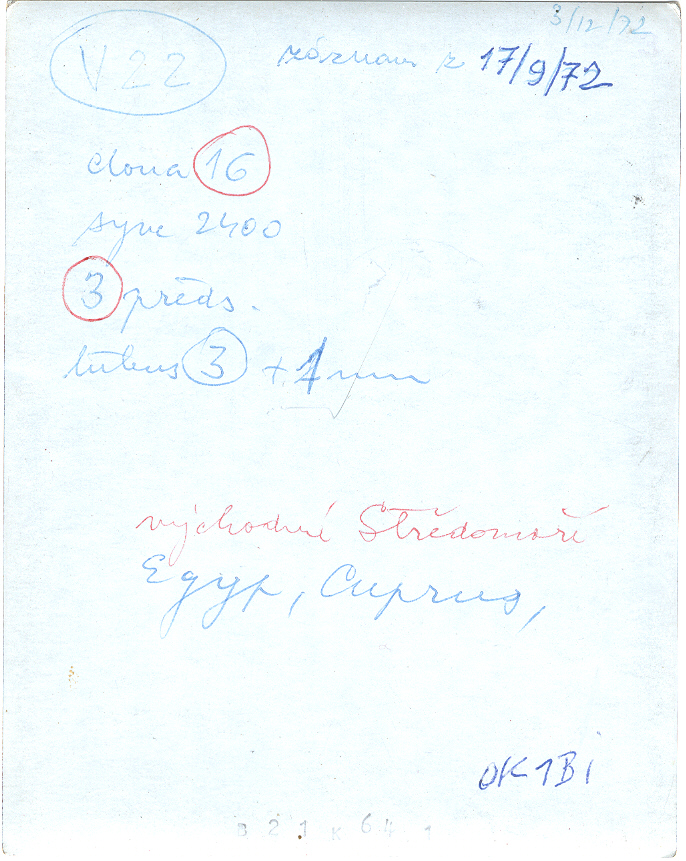 3/12/72
V 22
záznam z 17/9/72
clona 16
syne 2400
3 předs.
tubus 3 + 1 mm
východní Středomoří
Egyp, Cuprus,
OK1Bi
B 2 1 K 6 4 1